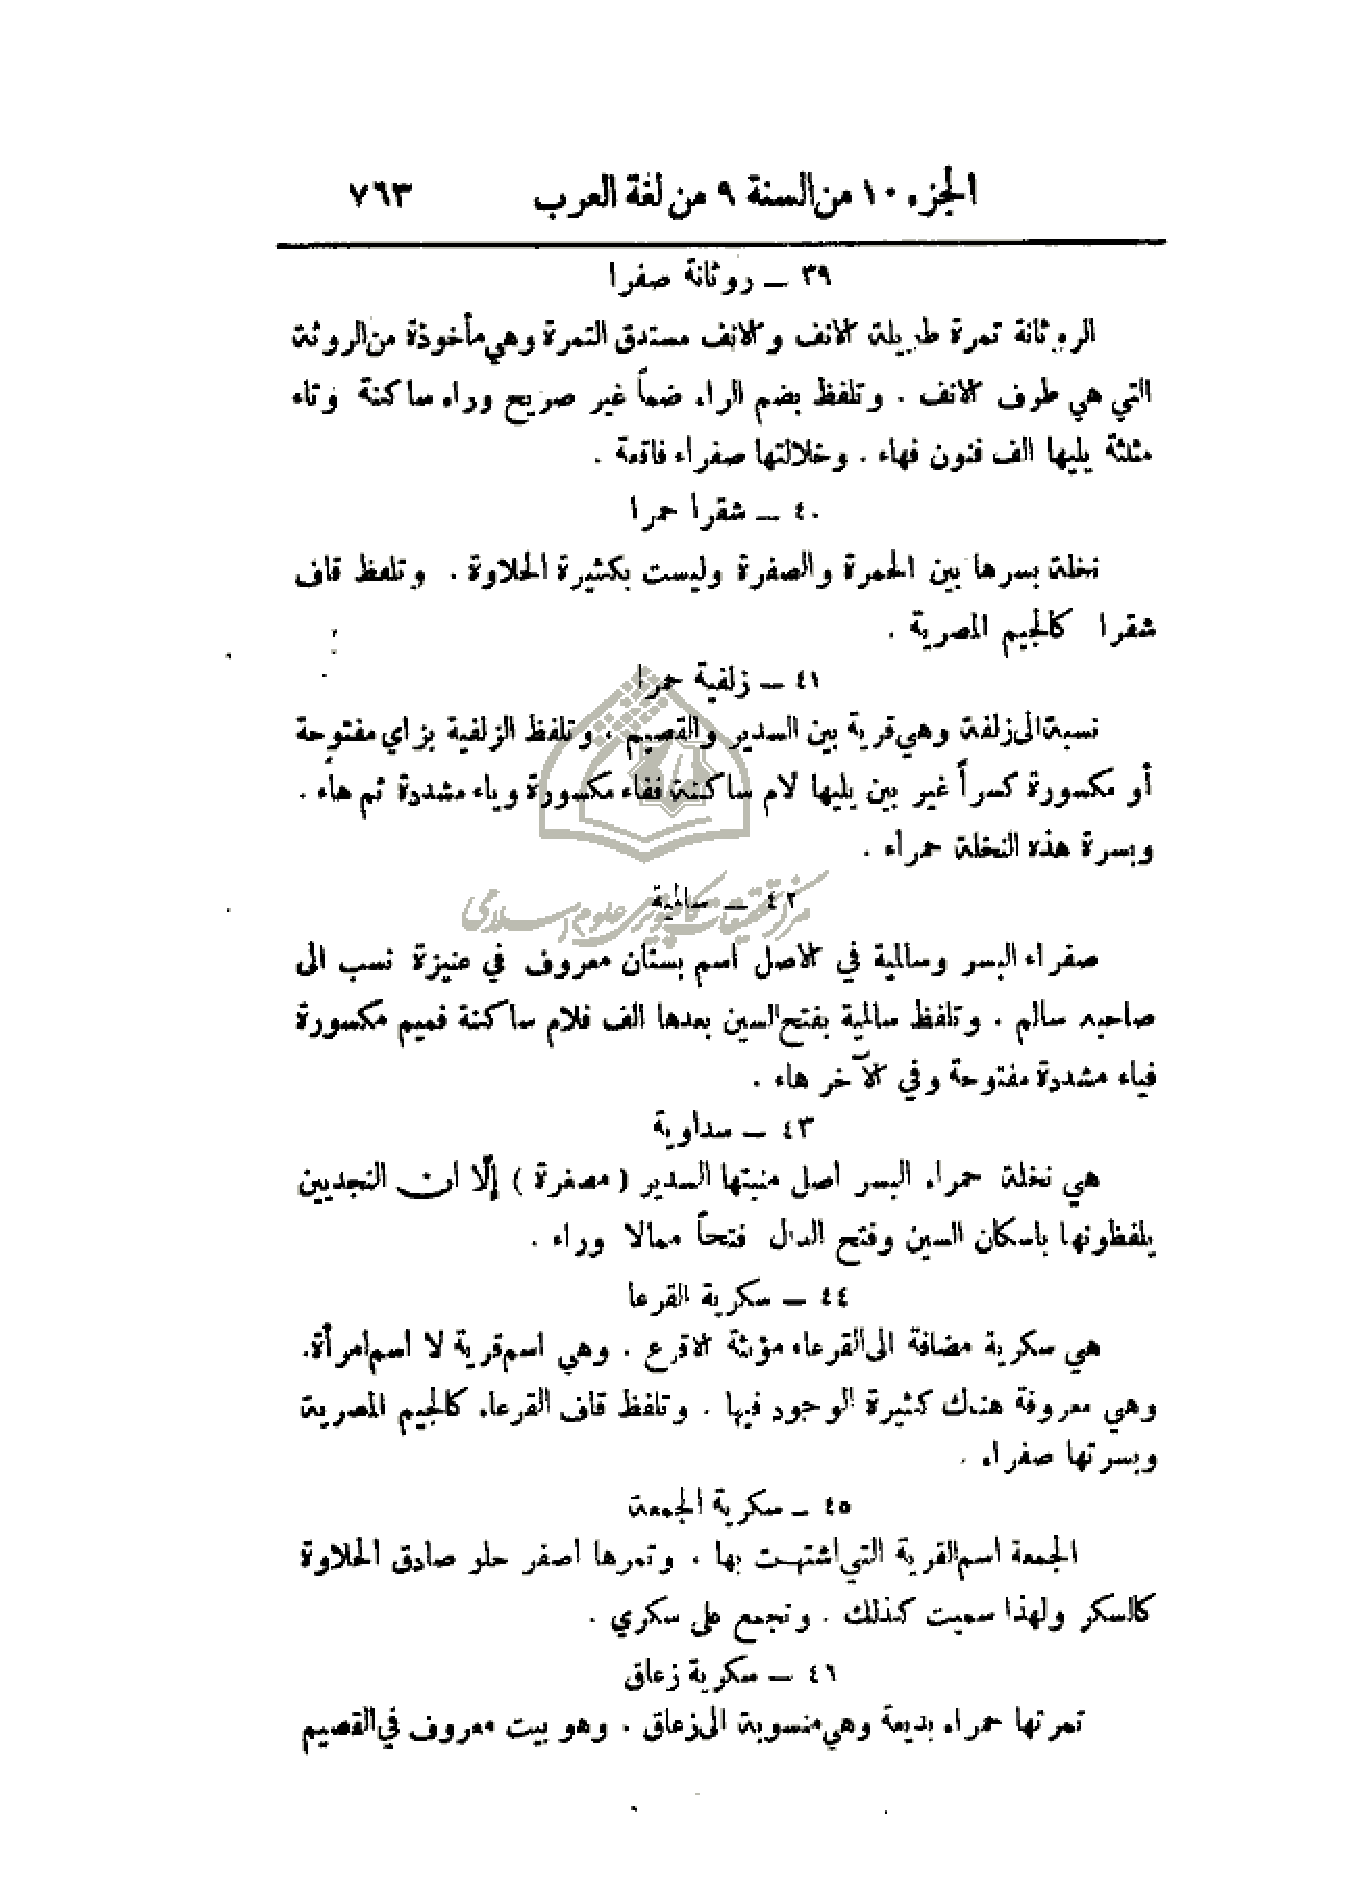 الجزء ١٠ من السنة ٩ من لغة العرب ٧٦٣
٣٩ ــ روثانة صفرا
الروثانة تمرة طويلة الانف والانف مستدق التمرة وهي مأخوذة من الروثة
التي هي طرف الانف . وتلفظ بضم الراء ضماً غير صريح وراء ساكنة وتاء
مثلثة يليها الف فنون فهاء . وخلالتها صفراء فاقعة .
٤٠ ــ شقرا حمرا
نخلة بسرها بين الحمرة والصفرة وليست بكثيرة الحلاوة . وتلفظ قاف
شقرا كالجيم المصرية .
٤١ ــ زلفية حمرا
نسبة الى زلفة وهي قرية بين السدير والقصيم . وتلفظ الزلفية بزاي مفتوحة
أو مكسورة كسراً غير بين يليها لام ساكنة ففاء مكسورة وياء مشددة ثم هاء .
وبسرة هذه النخلة حمراء .
٤٢ ــ سالمية
مركز تحقيقات كامپيوتري علوم اسلامي
صفراء البسر وسالمية في الاصل اسم بستان معروف في عنيزة نسب الى
صاحبه سالم . وتلفظ سالمية بفتح السين بعدها الف فلام ساكنة فميم مكسورة
فياء مشددة مفتوحة وفي الآخر هاء .
٤٣ ــ سداوية
هي نخلة حمراء البسر اصل منبتها السدير ( مصغرة ) إلّا ان النجديين
يلفظونها باسكان السين وفتح الدال فتحاً ممالا وراء .
٤٤ ــ سكرية القرعا
هي سكرية مضافة الى القرعاء مؤنثة الاقرع . وهي اسم قرية لا اسم امرأة.
وهي معروفة هناك كثيرة الوجود فيها . وتلفظ قاف القرعاء كالجيم المصرية
وبسرتها صفراء .
٤٥ ــ سكرية الجمعة
الجمعة اسم القرية التي اشتهرت بها . وتمرها اصفر حلو صادق الحلاوة
كالسكر ولهذا سميت كذلك . وتجمع على سكري .
٤٦ ــ سكرية زعاق
تمرتها حمراء بديعة وهي منسوبة الى زعاق . وهو بيت معروف في القصيم